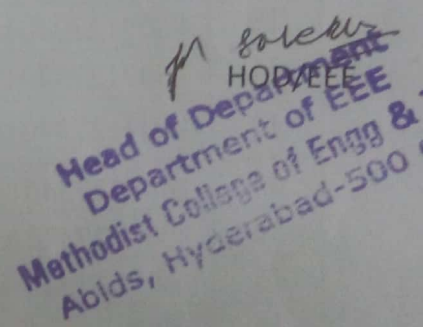 HOD/EEE
Head of Department
Department of EEE
Methodist College of Engg &
Abids, Hyderabad-500